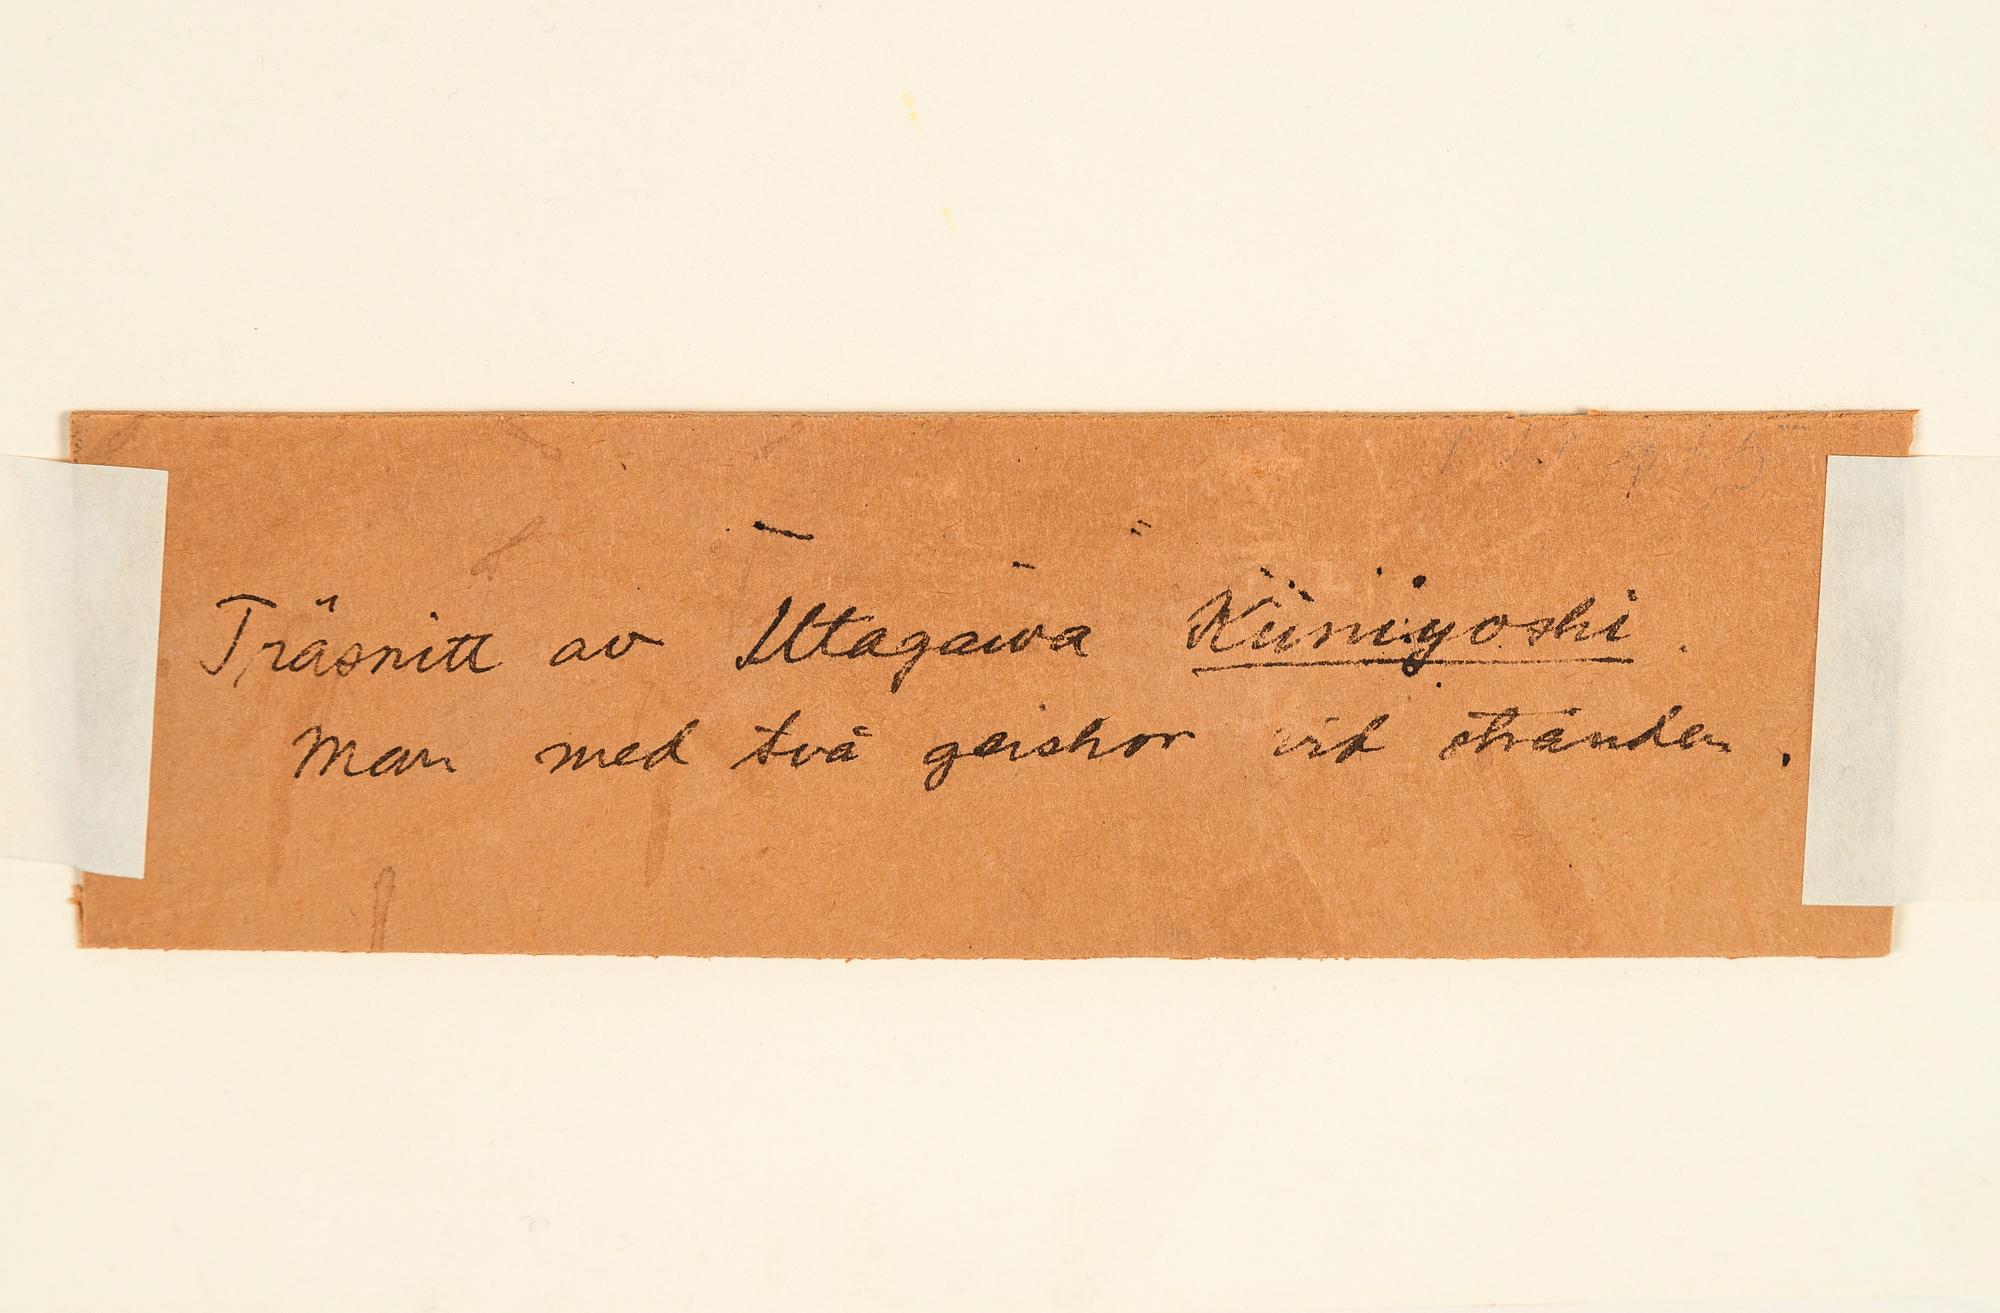 Träsnitt av Utagawa Küniyoshi.
Man med två geishor vid stranden.